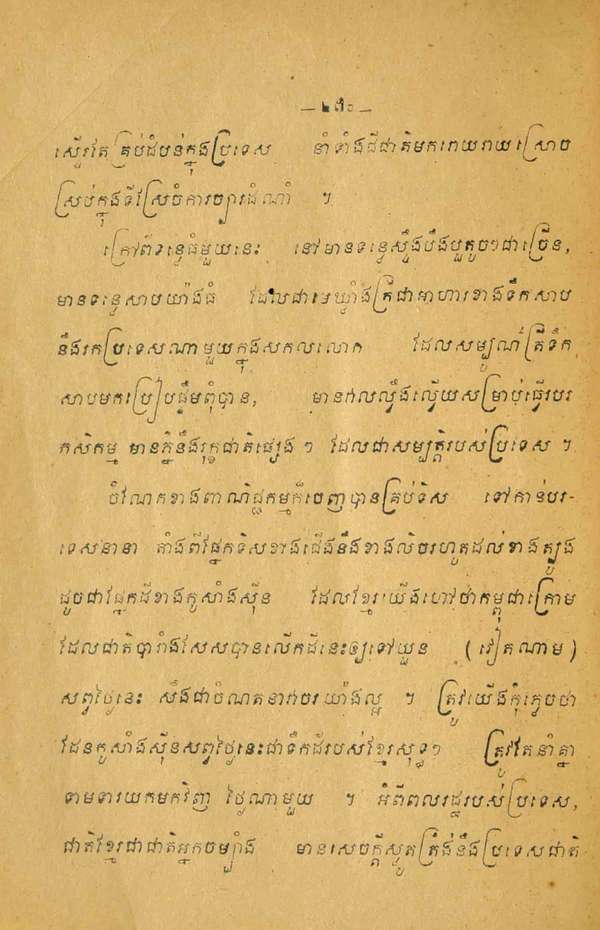 —២៣០—
ស្ទើរតែគ្រប់ដំបន់ក្នុងប្រទេស នាំទាំងជីជាតិមករោយរាយស្រោច
ស្រប់ក្នុងទីស្រែចំការច្បារដំណាំ ។
ក្រៅពីទន្លេធំមួយនេះ នៅមានទន្លេស្ទឹងបឹងបួតូចៗជាច្រើន,
មានទន្លេសាបយ៉ាងធំ ដែលជាមេឃ្លាំងត្រីជាអាហារខាងទឹកសាប
នឹងរកប្រទេសណាមួយក្នុងសកលលោក ដែលសម្បូណ៌ត្រីទឹក
សាបមកប្រៀបផ្ទឹមពុំបាន, មានវាលល្វឹងល្វើយសម្រាប់ធ្វើរបរ
កសិកម្ម មានភ្នំនឹងរុក្ខជាតិផ្សេង ៗ ដែលជាសម្បត្តិរបស់ប្រទេស ។
ចំណែកខាងពាណិជ្ជកម្មក៏ចេញបានគ្រប់ទិស ទៅកាន់បរ-
ទេសនានា តាំងពីផ្នែកទិសខាងជើងនឹងខាងលិចរហូតដល់ខាងត្បូង
ដូចជាផ្នែកដីខាងកូសាំងស៊ីន ដែលខ្មែរយើងហៅថាកម្ពុជាក្រោម
ដែលជាតិបារាំងសែសបានលើកដីនេះឲ្យទៅយួន (វៀតណាម)
សព្វថ្ងៃនេះ សឹងជាចំណតនាវាចរយ៉ាងល្អ ។ ត្រូវយើងកុំភ្លេចថា
ដែនកូសាំងស៊ីនសព្វថ្ងៃនេះជាទឹកដីរបស់ខ្មែរសុទ្ធៗ ត្រូវតែនាំគ្នា
ទាមទារយកមកវិញ ថ្ងៃណាមួយ ។ អំពីពលរដ្ឋរបស់ប្រទេស,
ជាតិខ្មែរជាជាតិអ្នកចម្បាំង មានសេចក្តីស្មូតត្រង់នឹងប្រទេសជាតិ